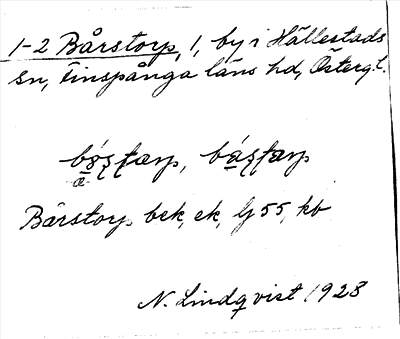 1-2 Bårstorp, 1, by i Hällestads
sn, Finspånga läns hd, Östergl.
Bårstorp bek, ek, Lj 55, kb
N. Lindqvist 1923